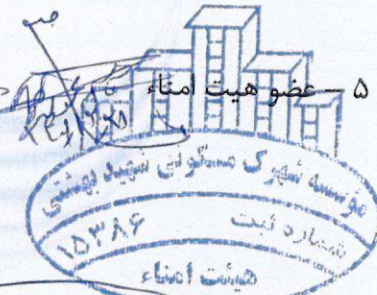 ۵ – عضو هیت امناء
موسسه شهرک مسکونی شهید بهشتی
شماره ثبت
۱۵۳۸۶
هیئت امناء